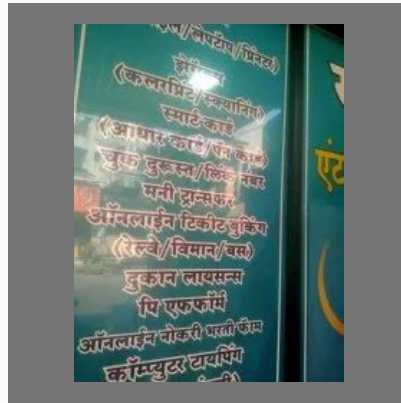 /लॅपटॉप/प्रिंटर)
झेरॉक्स
(कलरप्रिंट/स्क्यानिंग)
स्मार्ट कार्ड
(आधार कार्ड/पॅन कार्ड)
चुक दुरूस्त/लिंक नंबर
मनी ट्रान्सफर
ऑनलाईन टिकीट बुकिंग
(रेल्वे/विमान/बस)
दुकान लायसन्स
पि एफफॉर्म
ऑनलाईन नोकरी भरती फॅाम
कॉम्प्युटर टायपिंग